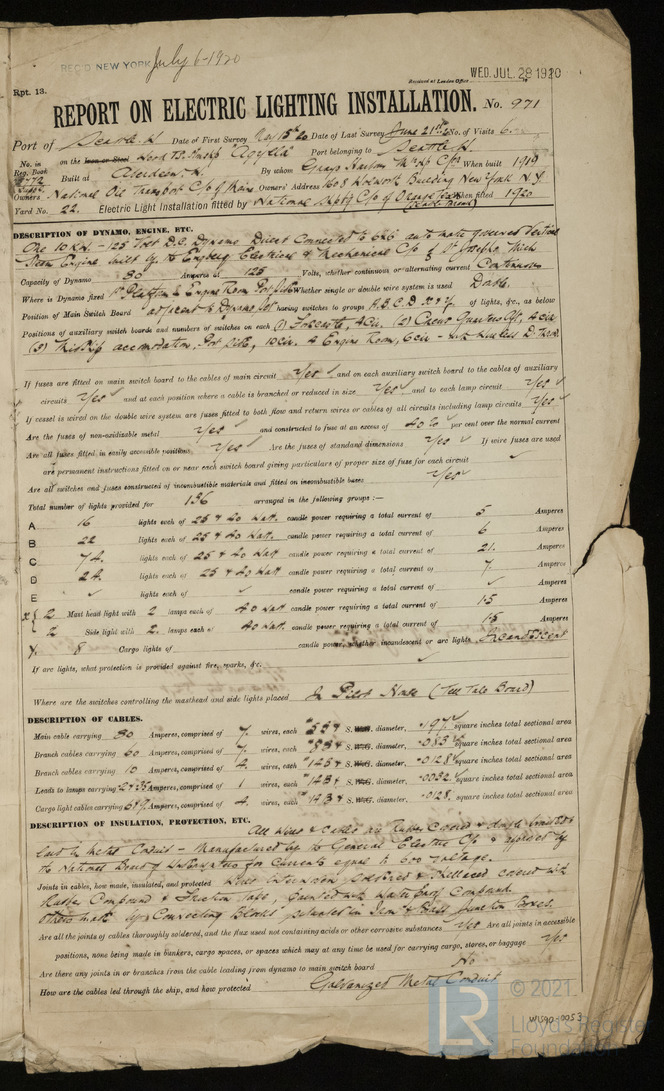 REC'D NEW YORK July 6-1920
Received at London Office WED. JUL. 28 1920
Rpt. 13.
REPORT ON ELECTRIC LIGHTING INSTALLATION. No. 971
Port of Seattle Date of First Survey Date of Last Survey June 21st No. of Visits 6
No. in Reg. Book on the Iron or Steel Wood "Agylla" Port belonging to Seattle
Built at Aberdeen By whom Grays Harbor When built 1919
Owners National Oil Transport Co of Owners' Address Building New York N.Y.
Yard No. 22. Electric Light Installation fitted by National Co of Orange When fitted 1920
DESCRIPTION OF DYNAMO, ENGINE, ETC.
One 10 KW - 125 Volt D.C. Dynamo Direct Connected to
Steam Engine built by Engberg Electrical & Mechanical Co of St Josephs Mich
Capacity of Dynamo 80 Amperes at 125 Volts, whether continuous or alternating current Continuous
Where is Dynamo fixed Engine Room Port Side Whether single or double wire system is used Double
Position of Main Switch Board adjacent to Dynamo having switches to groups A.B.C.D. X & Y of lights, &c., as below
Positions of auxiliary switch boards and numbers of switches on each (1) Forecastle, 4 Cir. (2) Crews Quarters Aft, 4 Cir
(3) Midship accomodation, Port Side, 10 Cir. 4 Engine Room, 6 cir
If fuses are fitted on main switch board to the cables of main circuit Yes and on each auxiliary switch board to the cables of auxiliary
circuits Yes and at each position where a cable is branched or reduced in size Yes and to each lamp circuit Yes
If vessel is wired on the double wire system are fuses fitted to both flow and return wires or cables of all circuits including lamp circuits Yes
Are the fuses of non-oxidizable metal Yes and constructed to fuse at an excess of 40% per cent over the normal current
Are all fuses fitted in easily accessible positions Yes Are the fuses of standard dimensions Yes If wire fuses are used
are permanent instructions fitted on or near each switch board giving particulars of proper size of fuse for each circuit ✓
Are all switches and fuses constructed of incombustible materials and fitted on incombustible bases Yes
Total number of lights provided for 136 arranged in the following groups :—
A 16 lights each of 25 & 40 Watt candle power requiring a total current of 5 Amperes
B 22 lights each of 25 & 40 Watt candle power requiring a total current of 6 Amperes
C 74 lights each of 25 & 40 Watt candle power requiring a total current of 21. Amperes
D 24 lights each of 25 & 40 Watt candle power requiring a total current of 7. Amperes
E ✓ lights each of ✓ candle power requiring a total current of ✓ Amperes
X { 2 Mast head light with 2 lamps each of 40 Watt candle power requiring a total current of 1.5 Amperes
2 Side light with 2. lamps each of 40 Watt candle power requiring a total current of 1.5 Amperes
Y. 8 Cargo lights of candle power, whether incandescent or arc lights Incandescent
If arc lights, what protection is provided against fire, sparks, &c. ✓
Where are the switches controlling the masthead and side lights placed In Pilot House (Tell Tale Board)
DESCRIPTION OF CABLES.
Main cable carrying 80 Amperes, comprised of 7. wires, each S.W.G. diameter, square inches total sectional area
Branch cables carrying 60 Amperes, comprised of 7. wires, each S.W.G. diameter, square inches total sectional area
Branch cables carrying 10 Amperes, comprised of 4. wires, each S.W.G. diameter, .0128 square inches total sectional area
Leads to lamps carrying Amperes, comprised of 1 wires, each S.W.G. diameter, .0032 square inches total sectional area
Cargo light cables carrying Amperes, comprised of 4. wires, each S.W.G. diameter, .0128. square inches total sectional area
DESCRIPTION OF INSULATION, PROTECTION, ETC.
All wires & cables are Rubber Covered & double braided &
laid in Metal Conduit - Manufactured by the General Electric Co & approved by
the National Board of Underwriters for currents equal to 600 voltage.
Joints in cables, how made, insulated, and protected Wires Interwoven Soldered & Shellaced covered with
Rubber Compound & Friction Tape, painted with water proof Compound.
Others made by Connecting Blocks in Iron & Brass Junction Boxes.
Are all the joints of cables thoroughly soldered, and the flux used not containing acids or other corrosive substances Yes Are all joints in accessible
positions, none being made in bunkers, cargo spaces, or spaces which may at any time be used for carrying cargo, stores, or baggage Yes
Are there any joints in or branches from the cable leading from dynamo to main switch board No
How are the cables led through the ship, and how protected Galvanized Metal Conduit
LR
© 2021
Lloyd's Register
Foundation
W1590-0053